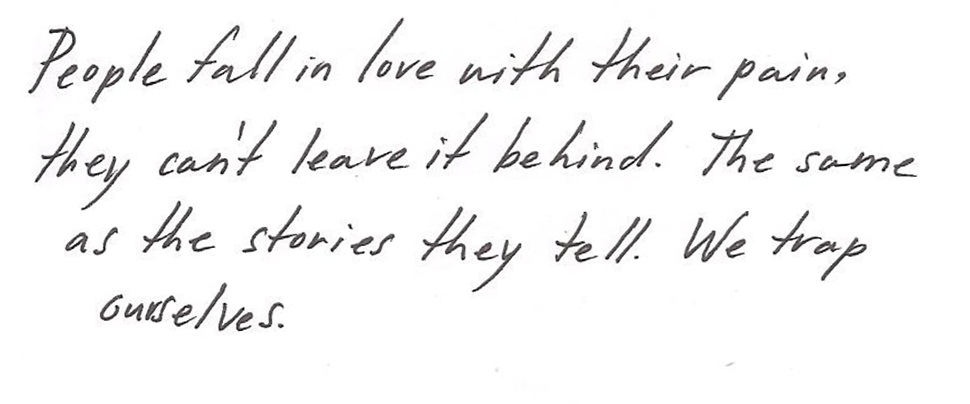 People fall in love with their pain,
they can't leave it behind. The same
as the stories they tell. We trap
ourselves.